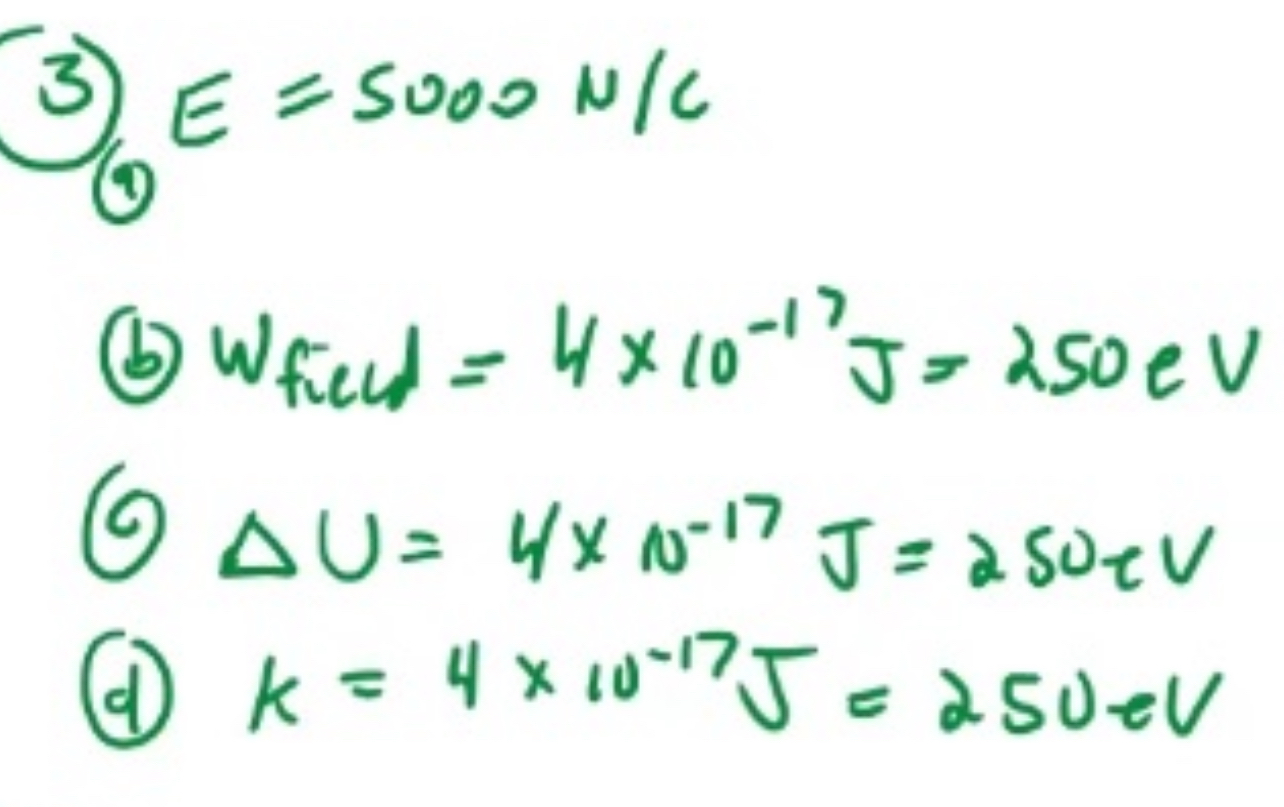 ③ E = 5000 N/C
ⓐ
ⓑ Wfield = 4 × 10⁻¹⁷ J = 250 eV
ⓒ ΔU = 4 × 10⁻¹⁷ J = 250 eV
ⓓ K = 4 × 10⁻¹⁷ J = 250 eV